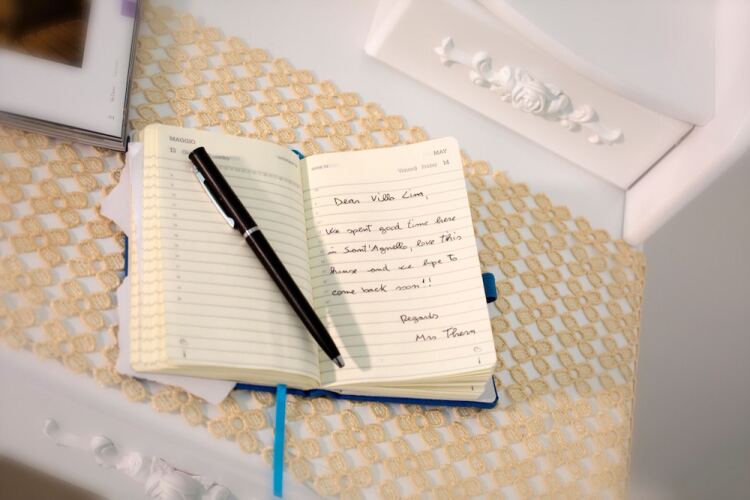 MAGGIO
13
MAY
Venerdì Friday 14
Dear Villa Lina,
We spent good time here
in Sant'Agnello, love this
house and we hope to
come back soon!!
Regards
Mrs